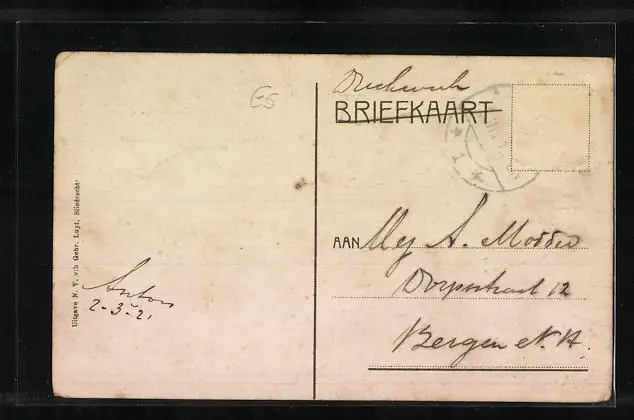 Drukwerk
BRIEFKAART
E5
AAN Mej A. Modder
Dorpsstraat 12
Bergen N.H.
Anton
2-3-21
Uitgave N. V. v/h Gebr. Luyt, Sliedrecht.